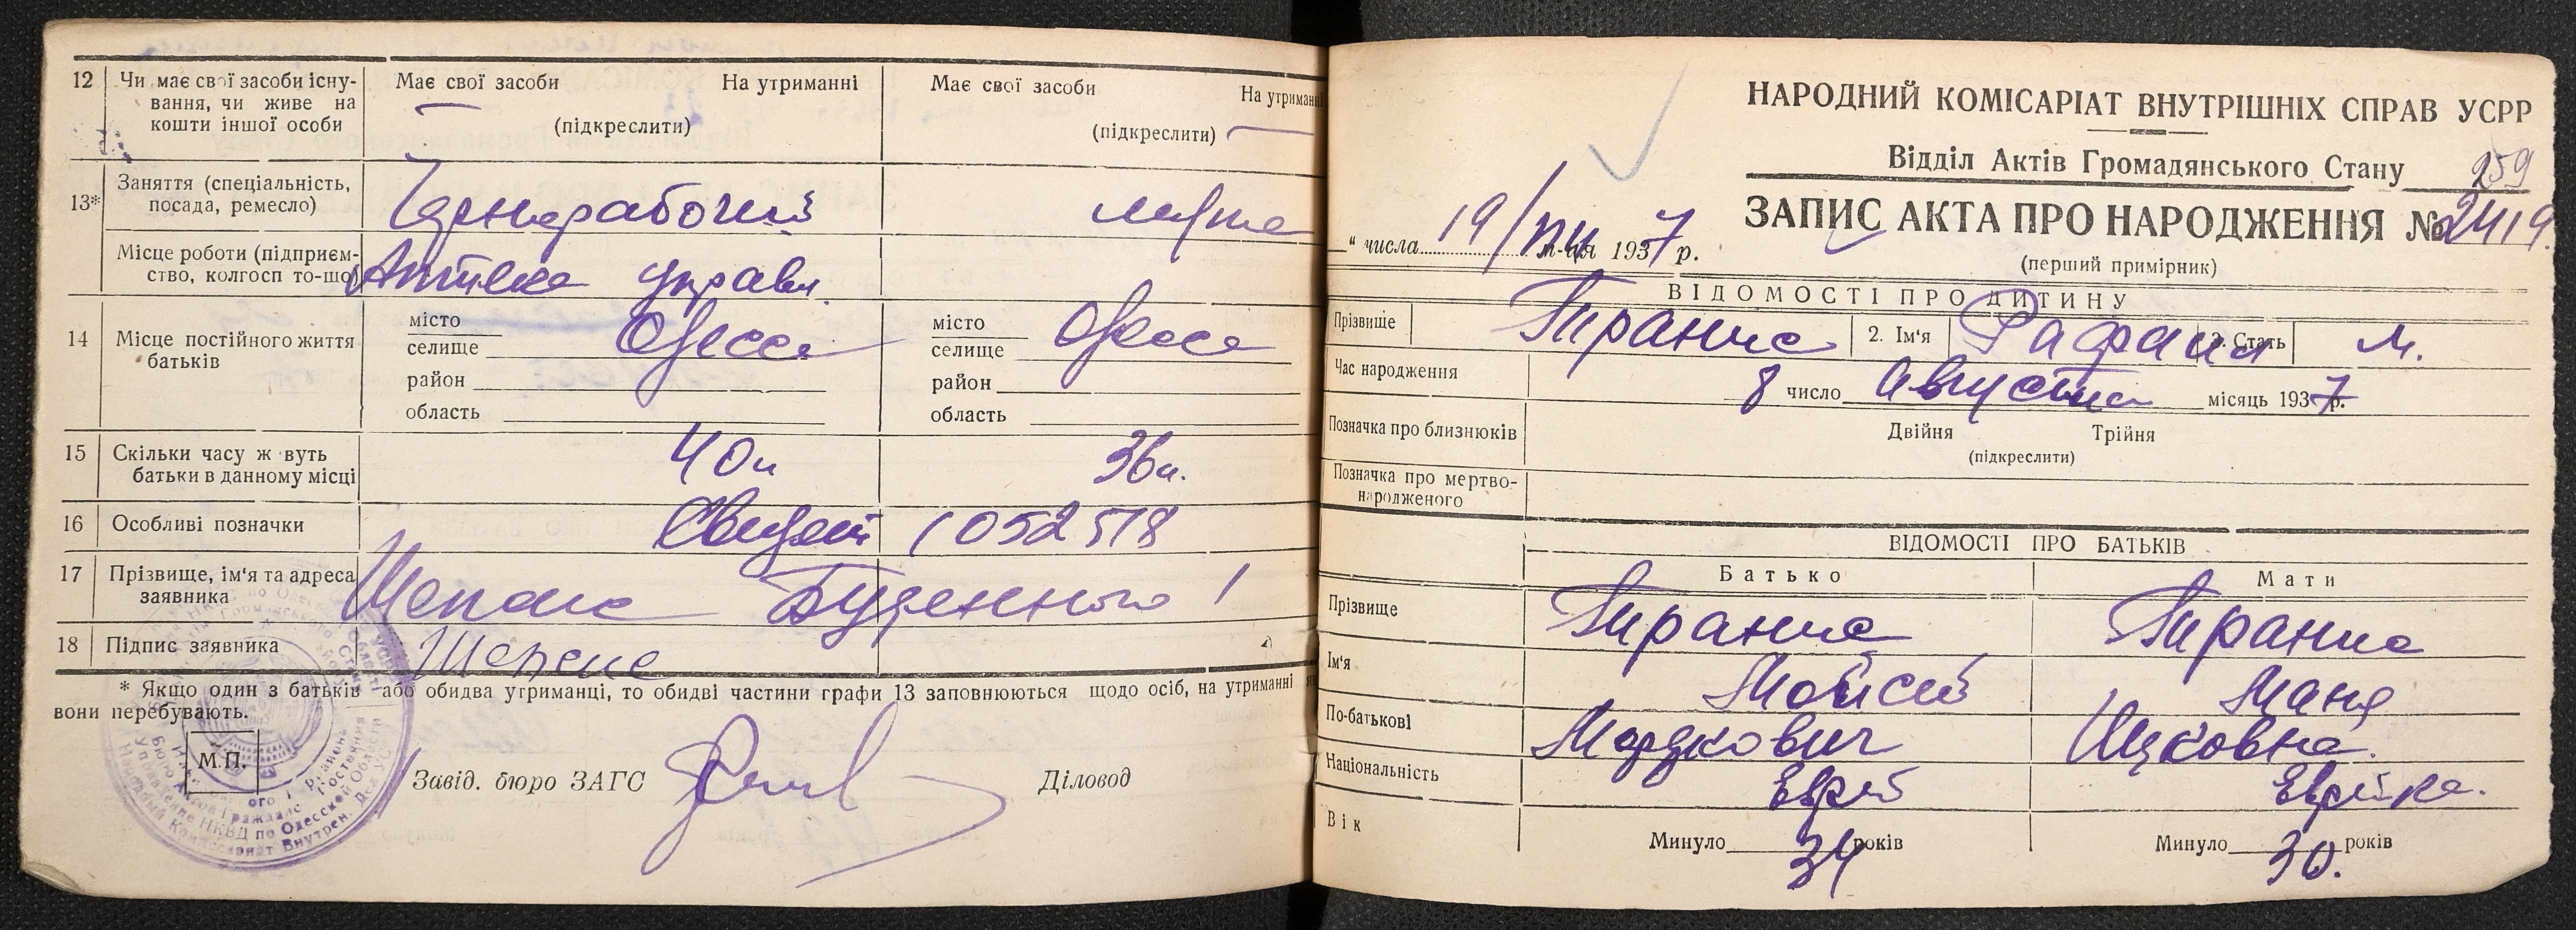 12 Чи має свої засоби існу-
вання, чи живе на
кошти іншої особи
Має свої засоби На утриманні
(підкреслити)
Має свої засоби На утриманні
(підкреслити)
13* Заняття (спеціальність,
посада, ремесло)
Чернорабочий
Місце роботи (підприєм-
ство, колгосп то-що)
Аптека управл.
14 Місце постійного життя
батьків
місто
селище Одесса
район
область
місто
селище Одесса
район
область
15 Скільки часу ж вуть
батьки в данному місці
16 Особливі позначки
1052518
17 Прізвище, ім'я та адреса
заявника
Буденного 1
18 Підпис заявника
* Якщо один з батьків або обидва утриманці, то обидві частини графи 13 заповнюються щодо осіб, на утриманні
вони перебувають.
М.П.
Завід. бюро ЗАГС Діловод
НАРОДНИЙ КОМІСАРІАТ ВНУТРІШНІХ СПРАВ УСРР
Відділ Актів Громадянського Стану 259
ЗАПИС АКТА ПРО НАРОДЖЕННЯ № 2419.
„ числа 19/VIII м-ця 1937 р.
(перший примірник)
ВІДОМОСТІ ПРО ДИТИНУ
Прізвище Тиранис 2. Ім'я Рафаил 3. Стать М.
Час народження 8 число Августа місяць 1937 р.
Позначка про близнюків Двійня Трійня
(підкреслити)
Позначка про мертво-
народженого
ВІДОМОСТІ ПРО БАТЬКІВ
Батько Мати
Прізвище Тиранис Тиранис
Ім'я Мойсей Маня
По-батькові Мордкович Ицковна.
Національність Еврей Еврейка.
Вік Минуло 34 років Минуло 30. років